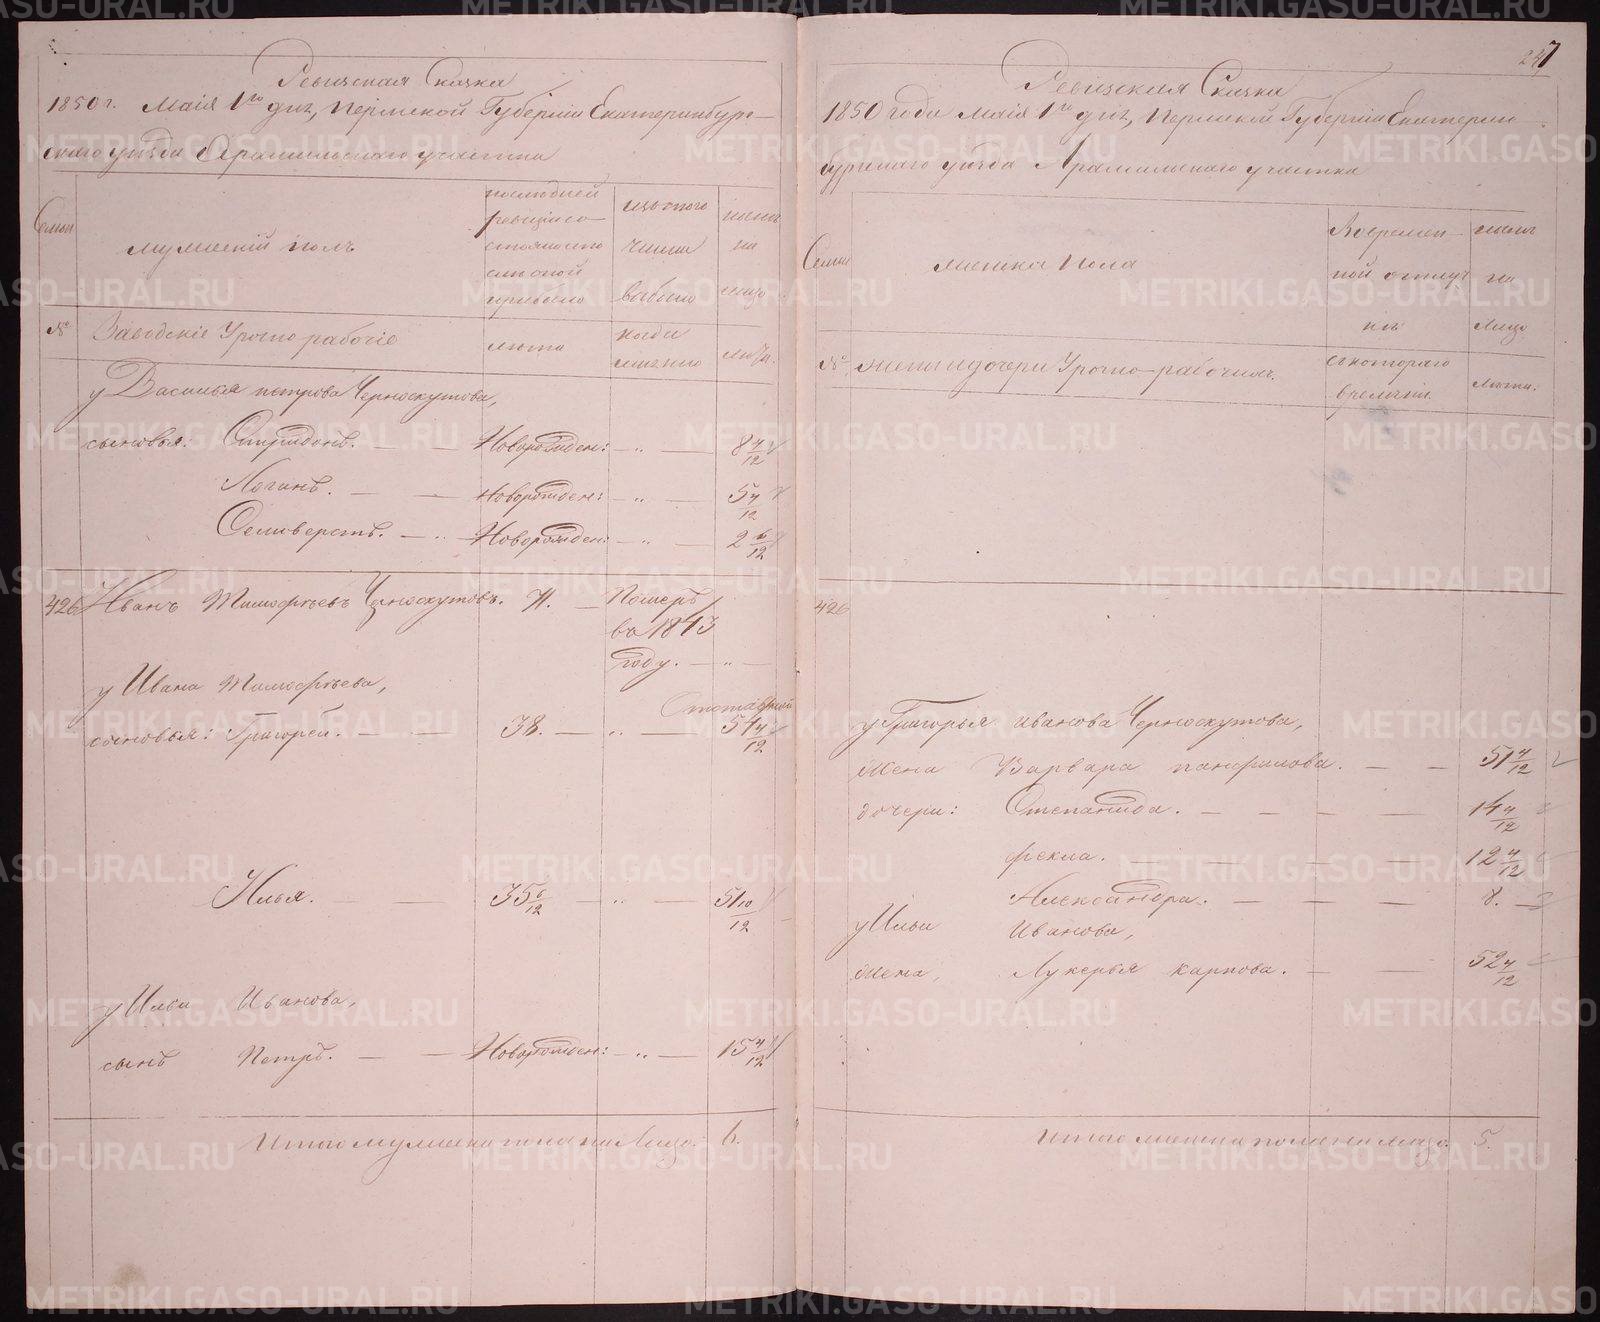 Ревизская Сказка
1850 г. Маія 1го дня, Пермской Губерніи Екатеринбург-
скаго уѣзда Арамильскаго участка
Семьи
мужескій полъ
последней ревизіи состояло
изъ того числа выбыло
ныне на лицо
№
Заводскіе Урочно рабочіе
лѣта
когда имянно
лѣта.
у Василья петрова Черноскутова,
сыновья: Спиридонъ. — — Новорожден: — „ — 8 4/12
Логинъ. — — Новорожден: — „ — 5 4/12
Селиверстъ. — „ — Новорожден: — „ — 2 6/12
426 Иванъ Тимофѣевъ Черноскутовъ. — Померъ
въ 1843
году. — „ —
у Ивана Тимофѣева,
сыновья: Григорей. — — 38. — „ — 54 4/12
Илья. — — 35 6/12 — „ — 51 10/12
у Ильи Иванова,
сынъ Петръ. — — Новорожден: — „ — 15 4/12
Итого мужеска пола на Лицо. 6.
247
Ревизская Сказка
1850 года Маія 1го дня, Пермской Губерніи Екатерин-
бургскаго уѣзда Арамильскаго участка
Семьи
женска Пола
Во временной отлучке
ныне на лицо
№
жены и дочери Урочно-рабочихъ.
съ котораго времени.
лѣта.
426
у Григорья иванова Черноскутова,
жена Варвара панфилова. — — 51 4/12
дочери: Степанида. — — — — 14 4/12
фекла. — — — — 12 4/12
Александра. — — — — 8. —
у Ильи Иванова,
жена, Лукерья карпова. — — 52 4/12
Итого женска пола на лицо. 5.
METRIKI.GASO-URAL.RU